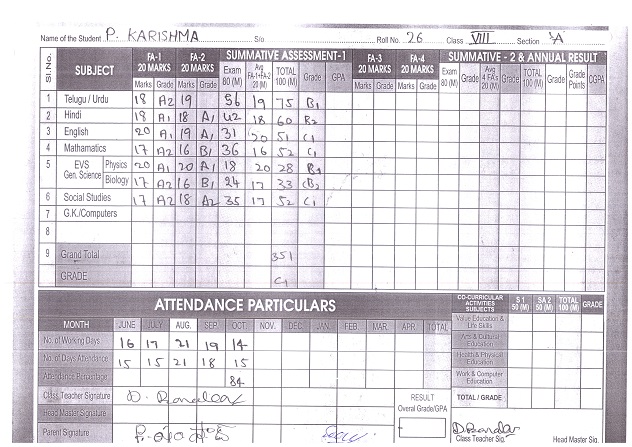 Name of the Student P. KARISHMA S/o Roll No. 26 Class VIII Section 'A'
Sl. No. SUBJECT FA-1 20 MARKS FA-2 20 MARKS SUMMATIVE ASSESSMENT-1 FA-3 20 MARKS FA-4 20 MARKS SUMMATIVE - 2 & ANNUAL RESULT
Marks Grade Marks Grade Exam 80 (M) Avg FA-1+FA-2 20 (M) TOTAL 100 (M) Grade GPA Marks Grade Marks Grade Exam 80 (M) Grade Avg 4 FA's 20 (M) Grade TOTAL 100 (M) Grade Grade Points CGPA
1 Telugu / Urdu 18 A2 19 56 19 75 B1
2 Hindi 18 A1 18 A1 42 18 60 B2
3 English 20 A1 19 A1 31 20 51 C1
4 Mathamatics 17 A2 16 B1 36 16 52 C1
5 EVS Gen. Science Physics 20 A1 20 A1 18 20 28
Biology 17 A2 16 B1 24 17 33 B2
6 Social Studies 17 A2 18 A2 35 17 52 C1
7 G.K./Computers
8
9 Grand Total 351
GRADE C1
ATTENDANCE PARTICULARS
MONTH JUNE JULY AUG. SEP. OCT. NOV. DEC. JAN. FEB. MAR. APR. TOTAL
No. of Working Days 16 17 21 19 14
No. of Days Attendance 15 15 21 18 15
Attendance Percentage 84
Class Teacher Signature
Head Master Signature
Parent Signature
RESULT
Overal Grade/GPA
CO-CURRICULAR ACTIVITIES SUBJECTS S 1 50 (M) SA 2 50 (M) TOTAL 100 (M) GRADE
Value Education & Life Skills
Arts & Cultural Education
Health & Physical Education
Work & Computer Education
TOTAL / GRADE
Class Teacher Sig. Head Master Sig.